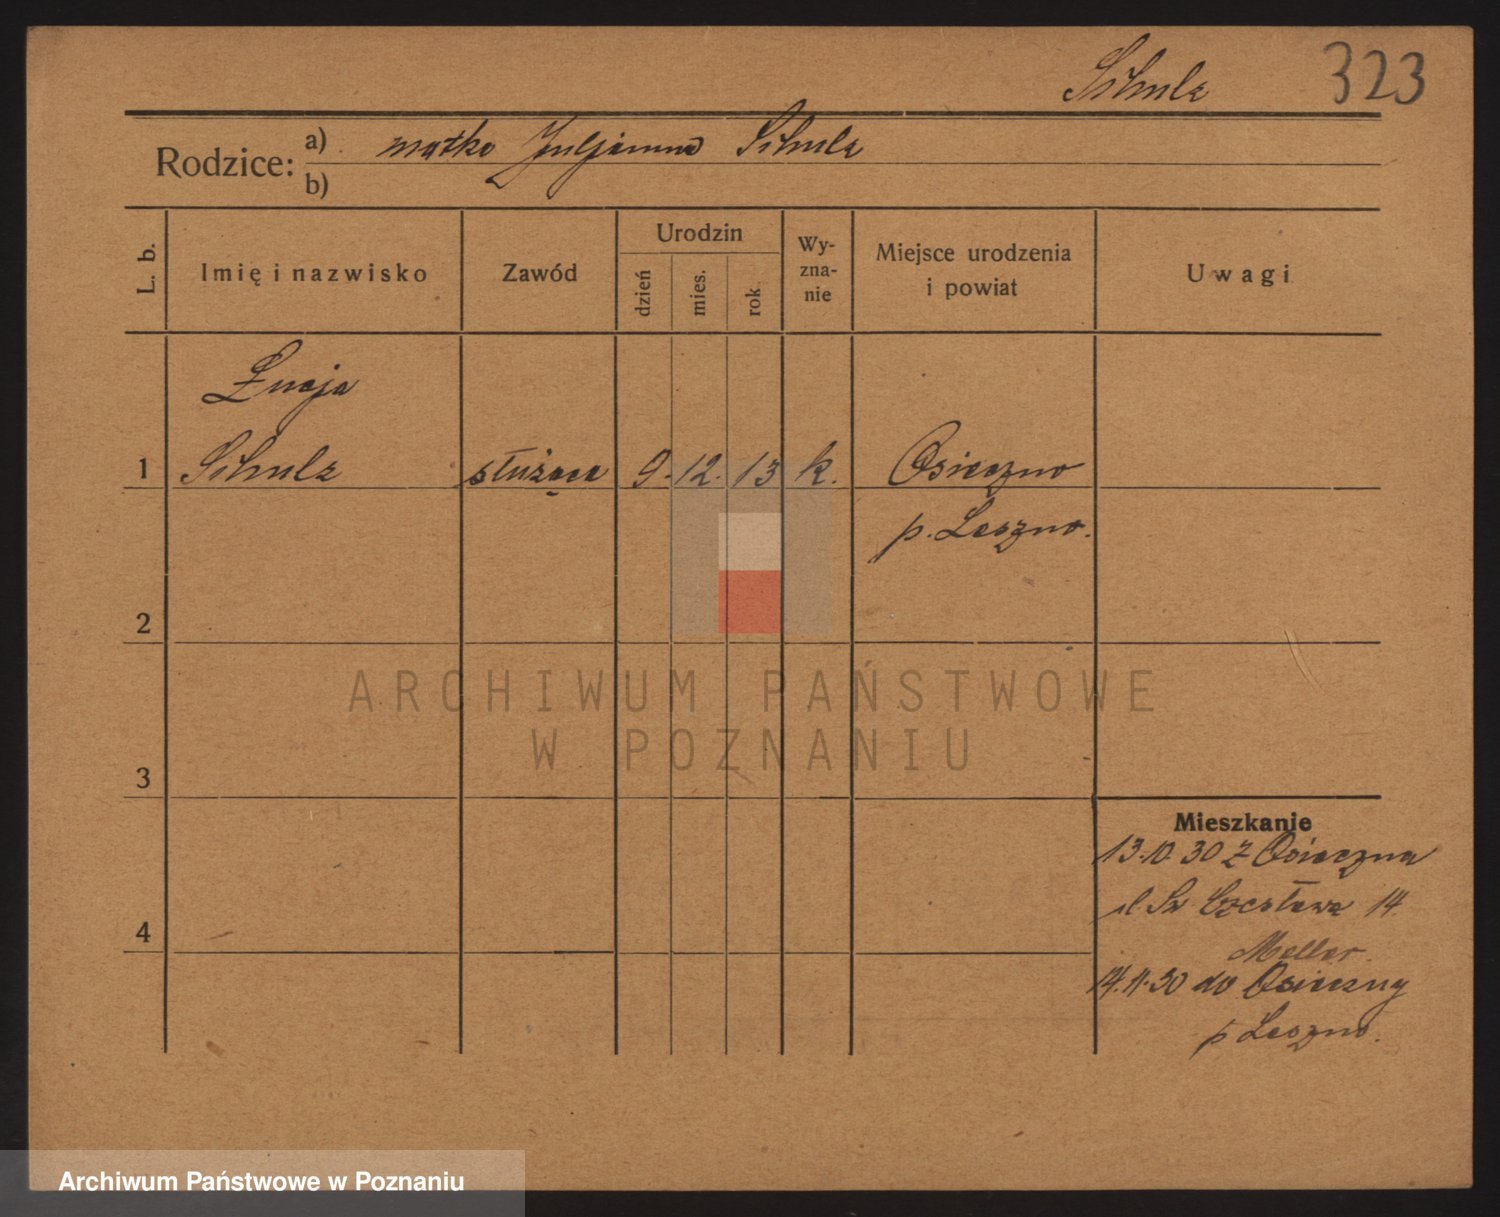 Schulz 323
Rodzice: a) matka Juljanna Schulz
b)
L. b. Imię i nazwisko Zawód Urodzin dzień mies. rok Wy-zna-nie Miejsce urodzenia i powiat Uwagi
Łucja
1 Schulz służąca 9. 12. 13 k. Osieczno
p. Leszno.
2
3
Mieszkanie
13.10.30 z Osieczna
ul Św Czesława 14.
4
Meller.
14.11.30 do Osieczny
p Leszno.
ARCHIWUM PAŃSTWOWE
W POZNANIU
Archiwum Państwowe w Poznaniu